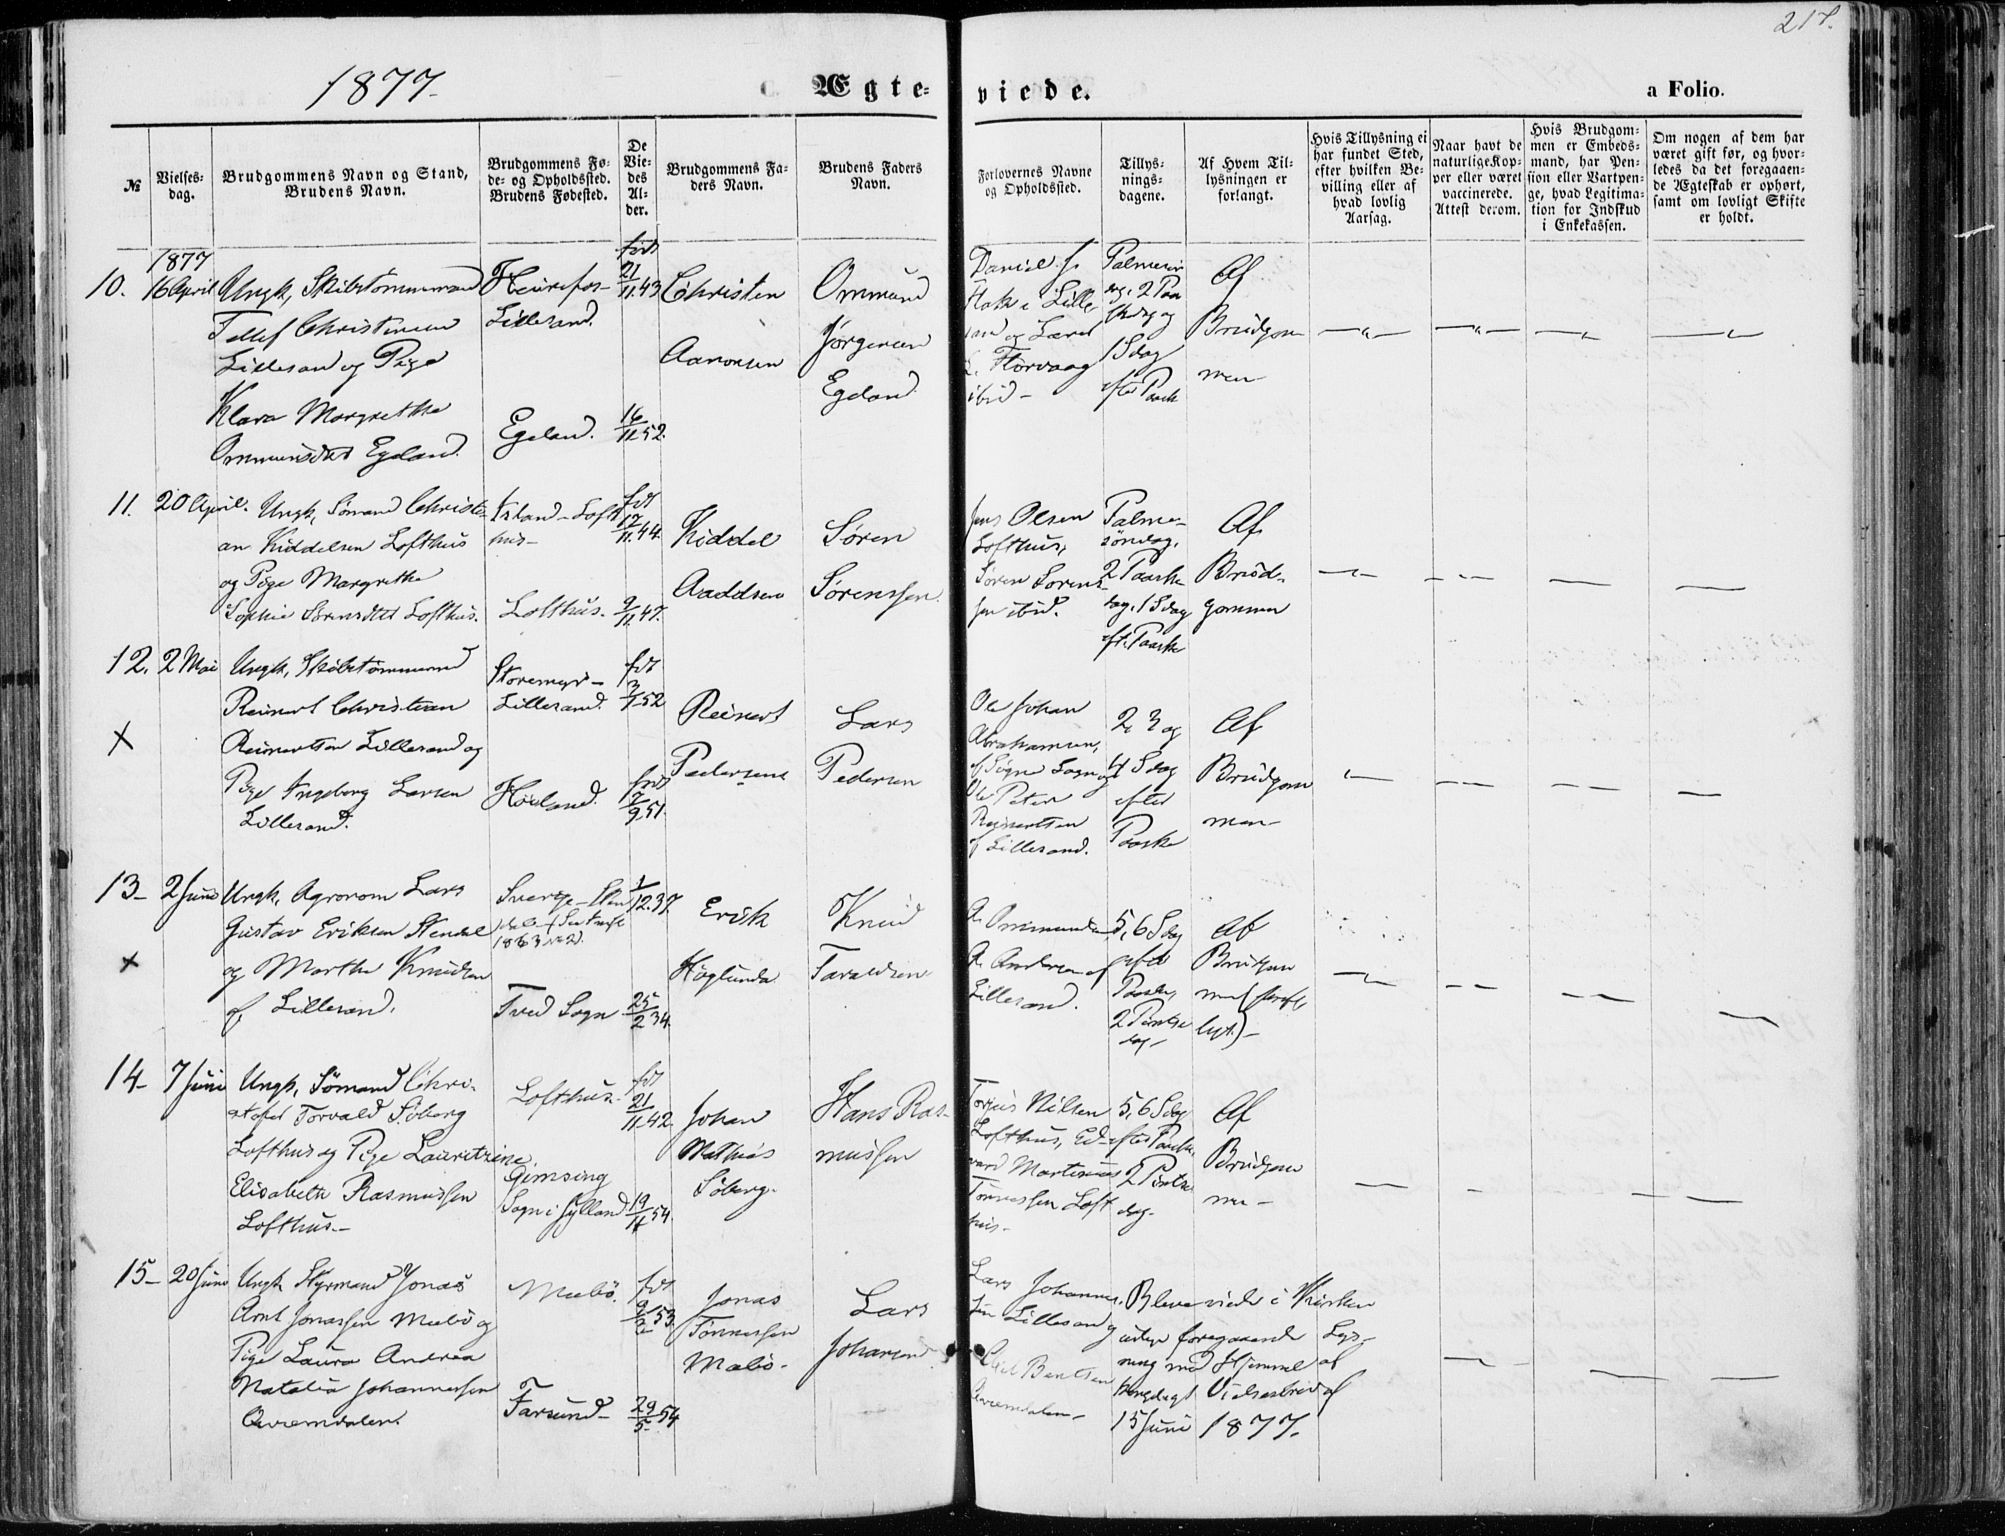 217.
1877.
Ægte-
viede.
a Folio.
№
Vielses-
dag.
Brudgommens Navn og Stand,
Brudens Navn.
Brudgommens Fø-
de- og Opholdssted.
Brudens Fødested.
De
Vie-
des
Al-
der.
Brudgommens Fa-
ders Navn.
Brudens Faders
Navn.
Forlovernes Navne
og Opholdssted.
Tillys-
nings-
dagene.
Af Hvem Til-
lysningen er
forlangt.
Hvis Tillysning ei
har fundet Sted,
efter hvilken Be-
villing eller af
hvad lovlig
Aarsag.
Naar havt de
naturlige Kop-
per eller været
vaccinerede.
Attest derom.
Hvis Brudgom-
men er Embeds-
mand, har Pen-
sion eller Vartpen-
ge, hvad Legitima-
tion for Indskud
i Enkekassen.
Om nogen af dem har
været gift før, og hvor-
ledes da det foregaaen-
de Ægteskab er ophørt,
samt om lovligt Skifte
er holdt.
1877
10.
16 April
Ungk, Skibstømmermand
Tellef Christensen
Lillesand og Pige
Klara Margrethe
Ommunsdtr Egeland.
Lillesand.
Egeland.
fdt
21
11.43
16
11.52.
Christen
Aaronsen
Ommund
Jørgensen
Egeland
Daniel
i Lille
sand og
ibid-
Palmesøn
dag, 2 Paa
skedag og
1 Sdag
efter Paask
Af
Brudgom
men-
11.
20 April.
Ungk, Sømand Christi-
an Kiddelsen Lofthus
og Pige Margrethe
Sophie Sørensdtr Lofthus.
Lofthus.
fdt
17
11.44.
9
11.47.
Kiddel
Aaddsen
Søren
Sørenssen
Jens Olsen
Lofthus,
Søren Sørens-
sen ibid.
Palme-
søndag,
2 Paaske
dag, 1 Sdag
eft. Paaske
Af
Brud-
gommen
12.
2 Mai
Ungk, Skibstømmermd
Reinert Christian
Reinertsen Lillesand og
Pige Ingeborg Larsen
Lillesand.
Storemyr-
Lillesand.
Høiland.
fdt
3
7.52
fdt
7
9.51.
Reinert
Pedersen
Lars
Pedersen
Ole Johan
Abrahamsen,
af Søgne Sogn og
Ole Peter
Reinertsen
af Lillesand.
2, 3 og
4 Sdag
efter
Paaske
Af
Brudgom
men-
13-
2 Juni
Ungk, Agronom Lars
Gustav Eriksen Stendal
og Marthe Knudsen
af Lillesand.
Sverige-Sten
1863
Tved Sogn
1
12.37.
25
2 34.
Erik
Höglunda
Knud
Taraldsen
Lillesand.
5, 6 Sdag
efter
Paaske,
2 Pintse
dag-
Af
Brudgom
men (skrift
ligt)-
14-
7 Juni
Ungk, Sömand Chri-
stofer Torvald Söberg
Lofthus og Pige Lauritzine
Elisabeth Rasmussen
Lofthus-
Lofthus-
Gimsing
Sogn i Jylland
fdt
21
11.42.
19
11 54.
Johan
Mathias
Söberg.
Hans Ras-
mussen
Torjus Nilsen
Lofthus, Ed-
vard Martinius
Tønnessen Loft
hus-
5, 6 Sdag
efter Paaske
2 Pintse
dag-
Af
Brudgom
men-
15-
20 Juni
Ungk Styrmand Jonas
Arnt Jonassen Mebö og
Pige Laura Andrea
Natalia Johannessen
Qvremdalen.
Mebö.
Farsund-
fdt
9
2 53.
29
5 54
Jonas
Tønnessen
Mebö-
Lars
Johansen
Lars Johannes-
sen Lillesand og
Bentsen
Bleve viede i Kirken
uden foregaaende Lys-
ning med Hjemmel af
kongeligt Vielsesbrev af
15 Juni 1877.